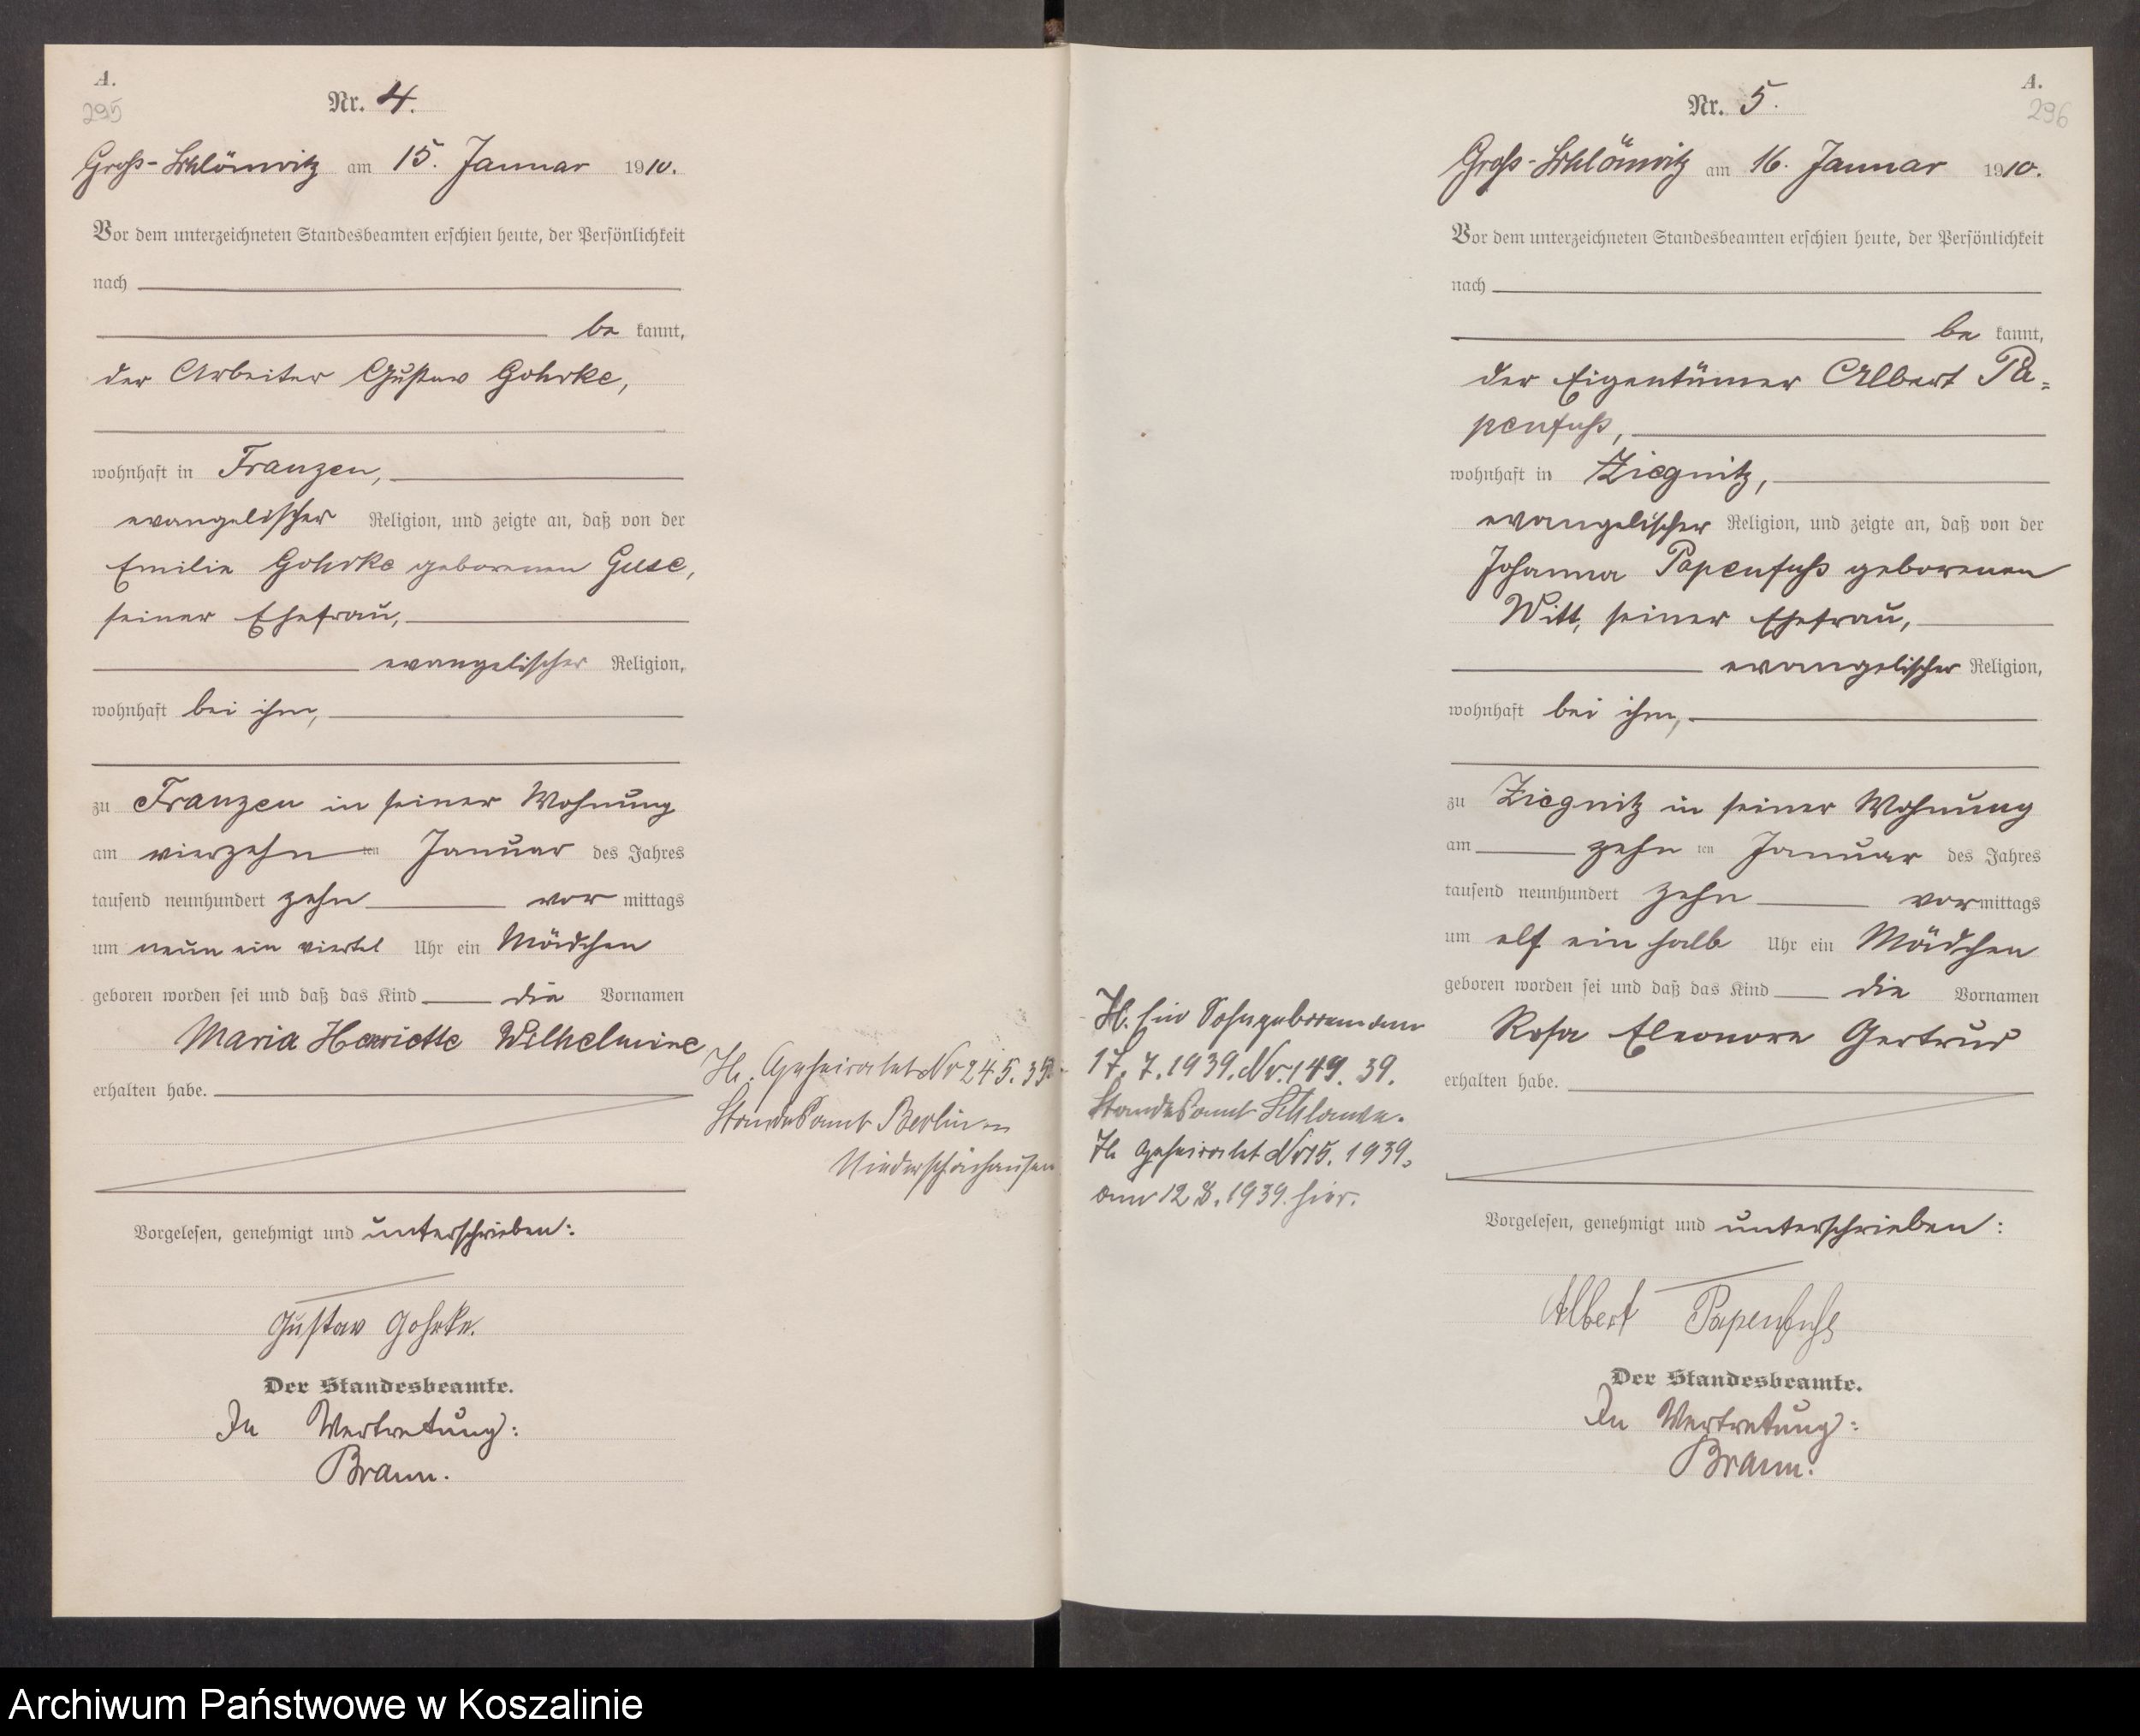 A.
295
Nr. 4.
Groß-Schlönwitz am 15. Januar 1910.
Vor dem unterzeichneten Standesbeamten erschien heute, der Persönlichkeit
nach
be kannt,
der Arbeiter Gustav Gohrke,
wohnhaft in Franzen,
evangelischer Religion, und zeigte an, daß von der
Emilie Gohrke geborenen Guse,
seiner Ehefrau,
evangelischer Religion,
wohnhaft bei ihm,
zu Franzen in seiner Wohnung
am vierzehn ten Januar des Jahres
tausend neunhundert zehn vor mittags
um neun ein viertel Uhr ein Mädchen
geboren worden sei und daß das Kind die Vornamen
Maria Henriette Wilhelmine
erhalten habe.
Vorgelesen, genehmigt und unterschrieben:
Gustav Gohrke.
Der Standesbeamte.
In Vertretung:
Braun.
H. Geheiratet Nr 245. 39.
Standesamt Berlin
Niederschönhausen
A.
296
Nr. 5.
Groß-Schlönwitz am 16. Januar 1910.
Vor dem unterzeichneten Standesbeamten erschien heute, der Persönlichkeit
nach
be kannt,
der Eigentümer Albert Pa=
penfuß,
wohnhaft in Ziegnitz,
evangelischer Religion, und zeigte an, daß von der
Johanna Papenfuß geborenen
Witt, seiner Ehefrau,
evangelischer Religion,
wohnhaft bei ihm,
zu Ziegnitz in seiner Wohnung
am zehn ten Januar des Jahres
tausend neunhundert zehn vor mittags
um elf ein halb Uhr ein Mädchen
geboren worden sei und daß das Kind die Vornamen
Rosa Eleonore Gertrud
erhalten habe.
Vorgelesen, genehmigt und unterschrieben:
Albert Papenfuß
Der Standesbeamte.
In Vertretung:
Braun.
H. Ein Sohn geboren am
17. 7. 1939. Nr. 149. 39.
Standesamt Schlawe.
H. Geheiratet Nr 15. 1939.
am 12. 8. 1939. hier.
Archiwum Państwowe w Koszalinie